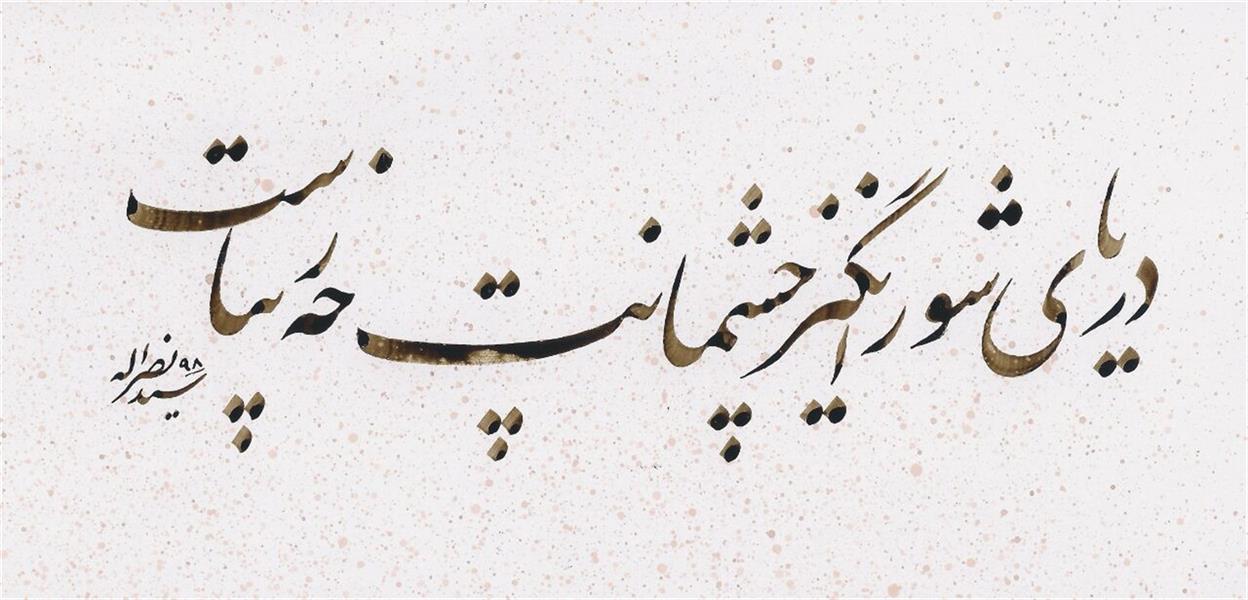 دریای شورانگیز چشمانت چه زیباست
سید نصراله ۹۸